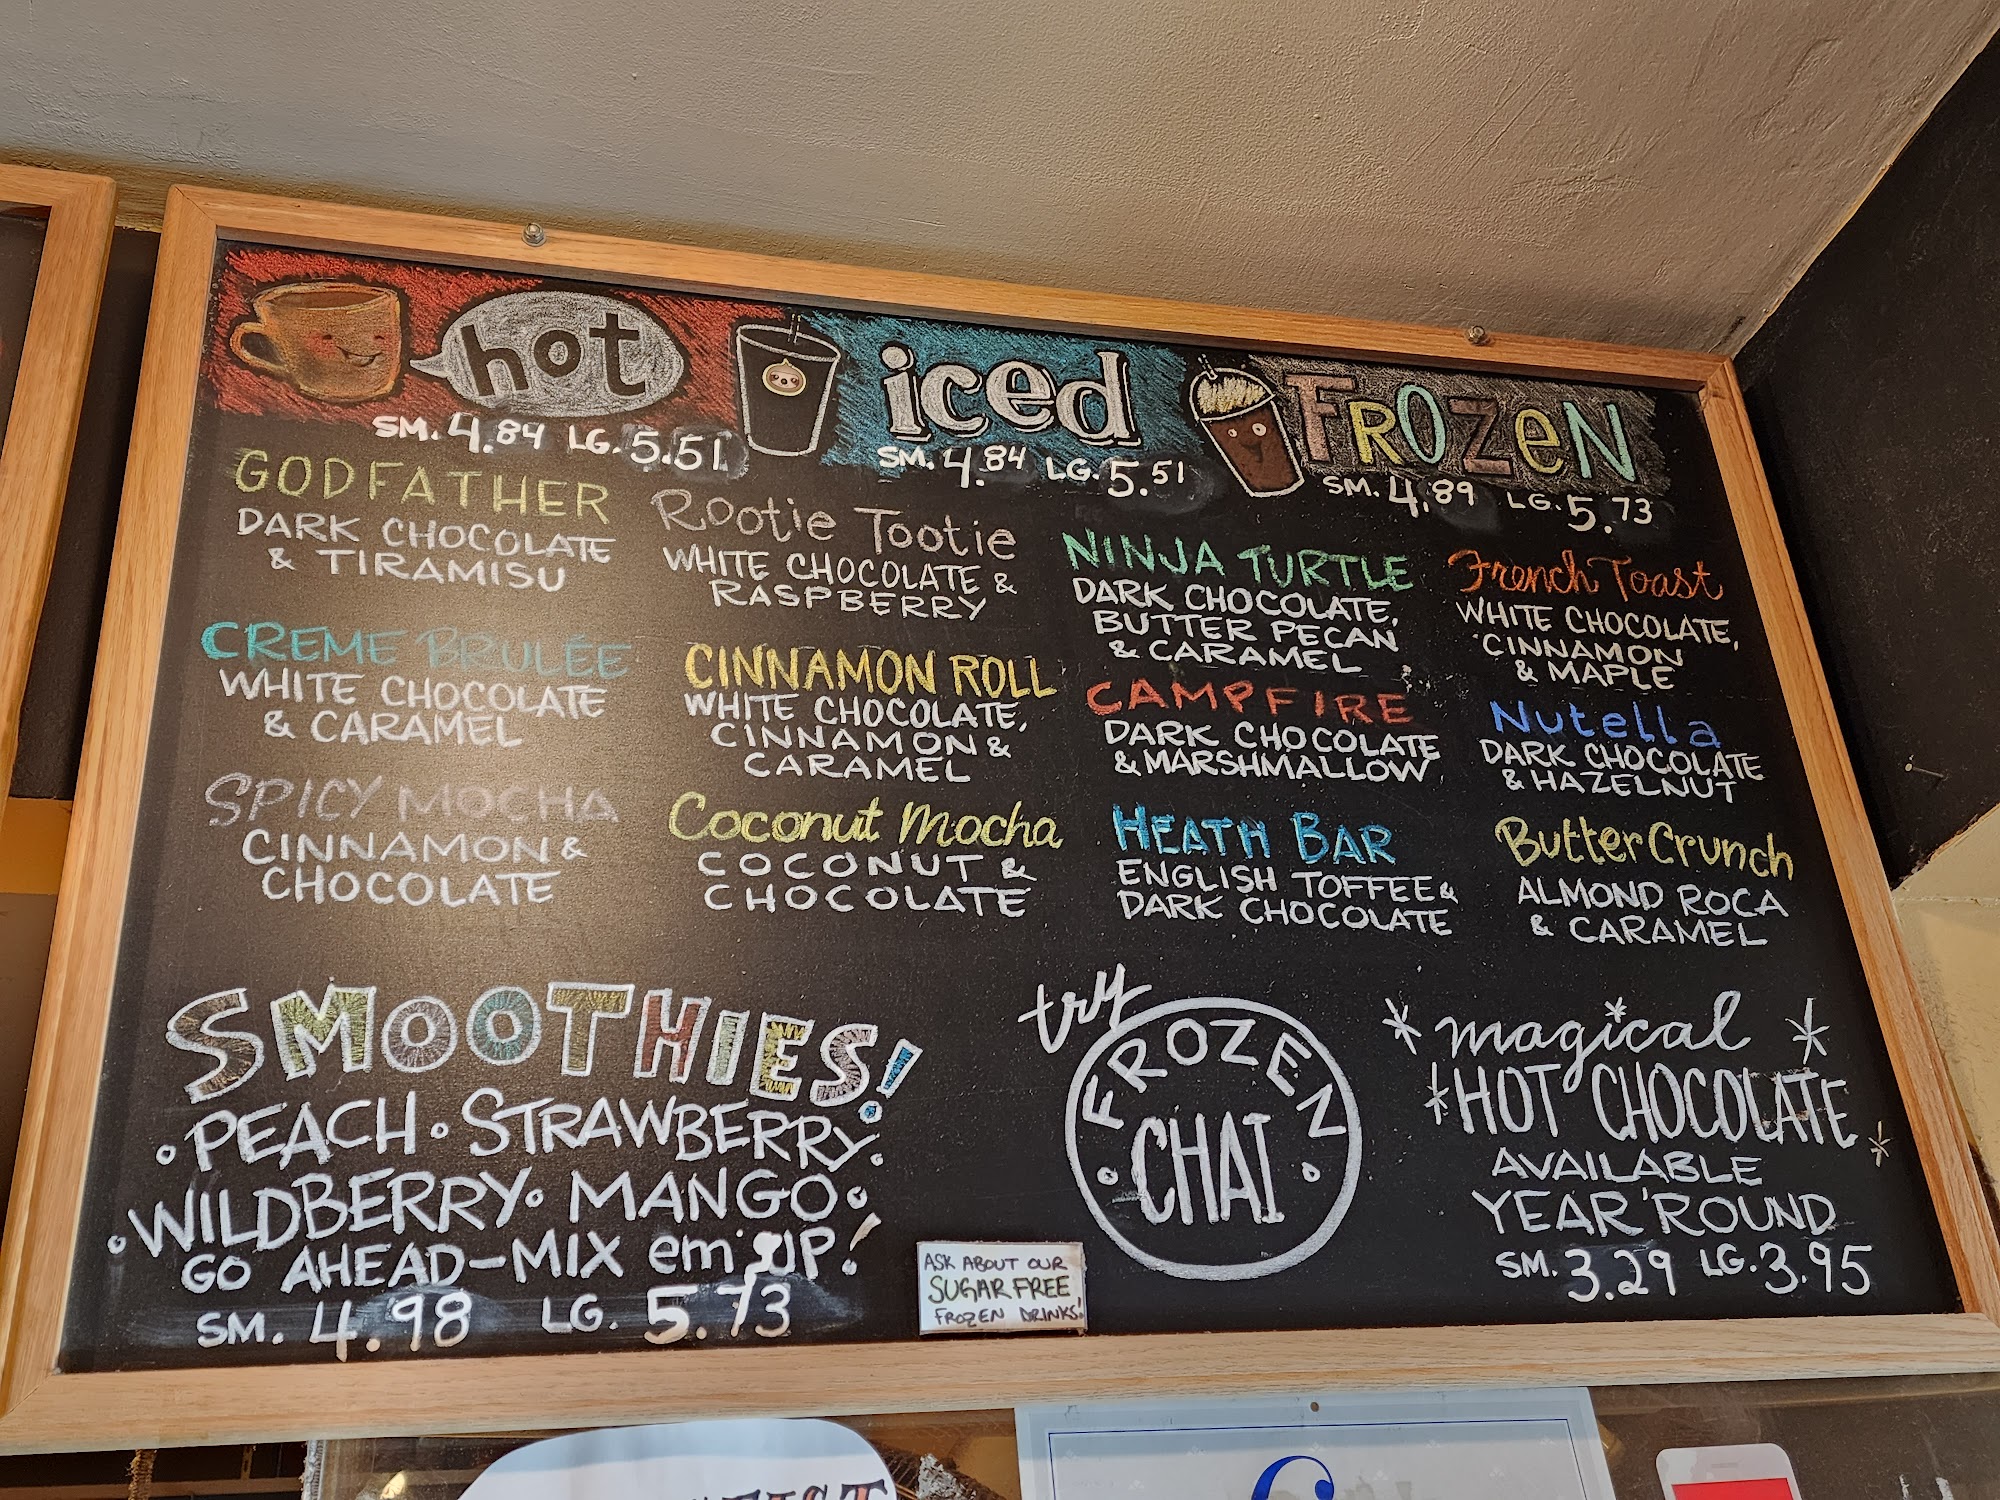 hot
SM. 4.84 LG. 5.51
iced
SM. 4.84 LG. 5.51
FROZeN
SM. 4.89 LG. 5.73
GODFATHER
DARK CHOCOLATE
& TIRAMISU
CREME BRULÉE
WHITE CHOCOLATE
& CARAMEL
SPICY MOCHA
CINNAMON &
CHOCOLATE
Rootie Tootie
WHITE CHOCOLATE &
RASPBERRY
CINNAMON ROLL
WHITE CHOCOLATE,
CINNAMON &
CARAMEL
Coconut Mocha
COCONUT &
CHOCOLATE
NINJA TURTLE
DARK CHOCOLATE,
BUTTER PECAN
& CARAMEL
CAMPFIRE
DARK CHOCOLATE
& MARSHMALLOW
HEATH BAR
ENGLISH TOFFEE &
DARK CHOCOLATE
French Toast
WHITE CHOCOLATE,
CINNAMON
& MAPLE
Nutella
DARK CHOCOLATE
& HAZELNUT
Butter Crunch
ALMOND ROCA
& CARAMEL
SMOOTHIES!
• PEACH • STRAWBERRY •
• WILDBERRY • MANGO •
GO AHEAD-MIX em UP!
SM. 4.98 LG. 5.73
ASK ABOUT OUR
SUGAR FREE
FROZEN DRINKS!
try
FROZEN
• CHAI •
magical
HOT CHOCOLATE
AVAILABLE
YEAR 'ROUND
SM. 3.29 LG. 3.95